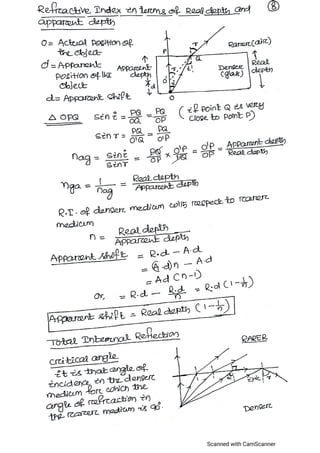 Refractive Index in terms of Real depth and
apparent depth
8
O = Actual Position of
the Object
O' = Apparent
Position of the
Object
d = Apparent Shift
Rarer (air)
Apparent
depth
Denser
(glass)
Real
depth
P
Q
i
r
O'
O
d
△ OPQ sin i = PQ/OQ = PQ/OP (if point Q is very
close to point P)
sin r = PQ/O'Q = PQ/O'P
nag = sin i/sin r = PQ/OP × O'P/PQ = O'P/OP = Apparent depth/Real depth
nga = 1/nag = Real depth/Apparent depth
R.I. of denser medium with respect to rarer
medium
n = Real depth/Apparent depth
Apparent shift = R.d – A.d
= (A.d)n – A.d
= Ad (n-1)
or, = R.d – R.d/n = R.d (1-1/n)
Apparent shift = Real depth (1-1/n)
Total Internal Reflection
Critical angle
it is that angle of
incidence in the denser
medium for which the
angle of refraction in
the rarer medium is 90°.
RARER
Denser
Scanned with CamScanner